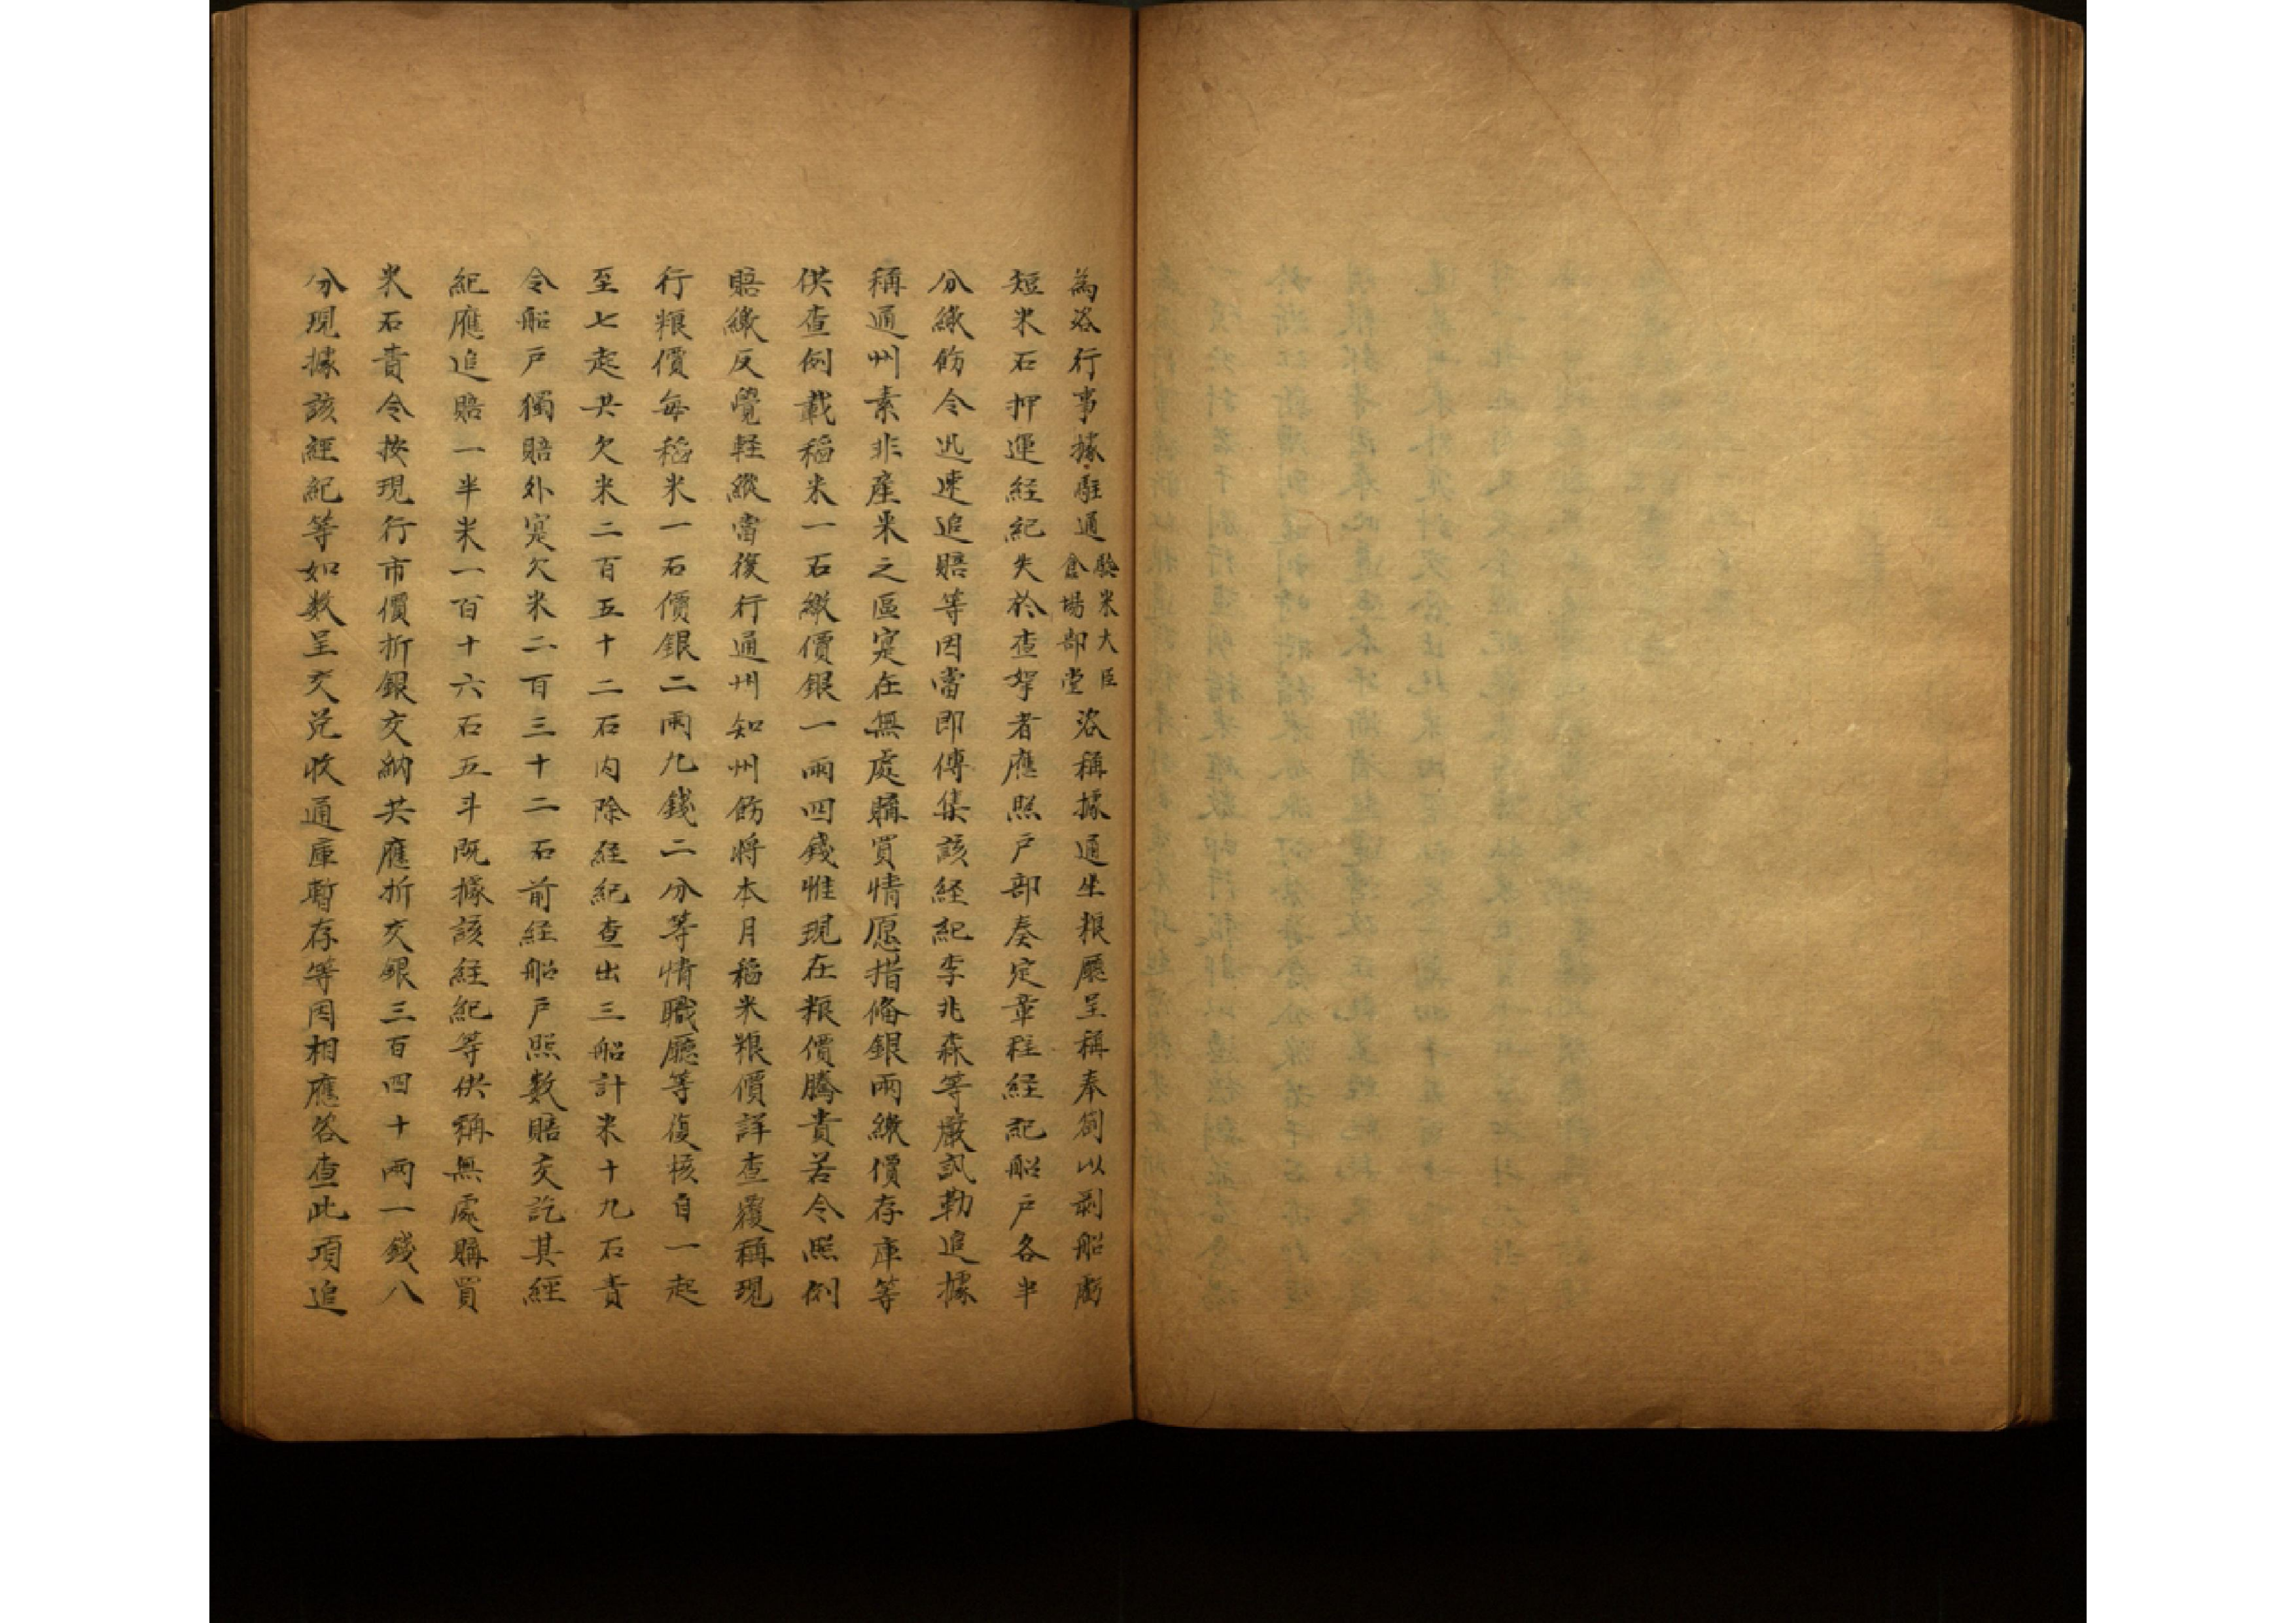 為咨行事據駐通驗米大臣倉場部堂咨稱據通坐粮廳呈稱奉劄以剥船虧
短米石押運経紀失於查拏者應照戶部奏定章程経紀船戶各半
分繳飭令迅速追賠等因當即傳集該経紀李兆森等嚴訊勒追據
稱通州素非產米之區寔在無處購買情愿措俻銀兩繳價存庫等
供查例載稻米一石繳價銀一兩四錢惟現在粮價騰貴若令照例
賠繳反覺軽縱當復行通州知州飭将本月稻米粮價詳查覆稱現
行粮價每稻米一石價銀二兩九錢二分等情職廳等復核自一起
至七起共欠米二百五十二石内除経紀查出三船計米十九石責
令船戶獨賠外寔欠米二百三十二石前経船戶照數賠交訖其經
紀應追賠一半米一百十六石五斗既據該経紀等供稱無處購買
米石責令按現行市價折銀交納共應折交銀三百四十兩一錢八
分現據該經紀等如数呈交兑收通庫暫存等因相應咨查此項追